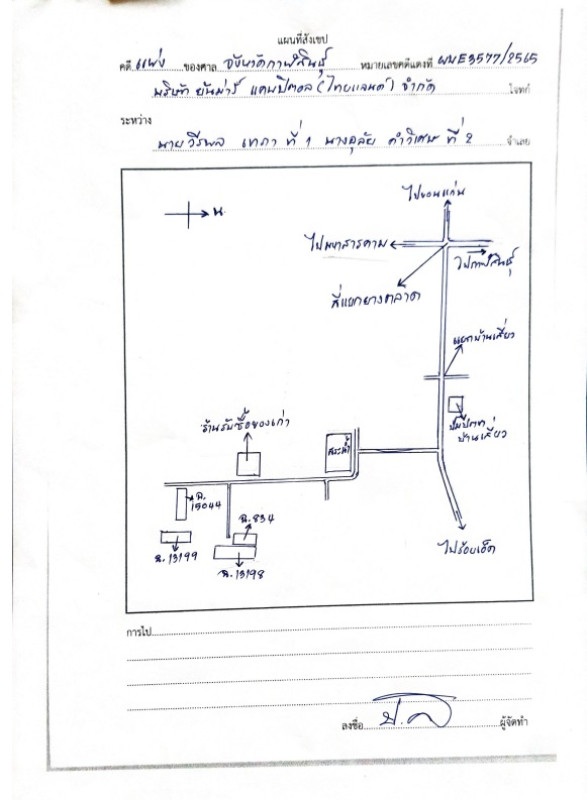 แผนที่สังเขป
คดี แพ่ง ของศาล จังหวัดกาฬสินธุ์ หมายเลขคดีแดงที่ ผบE3577/2565
บริษัท ยันม่าร์ แคปปิตอล (ไทยแลนด์) จำกัด โจทก์
ระหว่าง
นายวีรพล เทภา ที่ 1 นางอุลัย คำวิเศษ ที่ 2 จำเลย
ไปขอนแก่น
น
ไปมหาสารคาม
ไปกาฬสินธุ์
สี่แยกยางตลาด
แยกบ้านเสี้ยว
ร้านรับซื้อของเก่า
สระน้ำ
ปั๊มปตท
บ้านเสี้ยว
ฉ.
15044
ฉ.834
ไปร้อยเอ็ด
ฉ.13199
ฉ.13198
การไป
ลงชื่อ ผู้จัดทำ